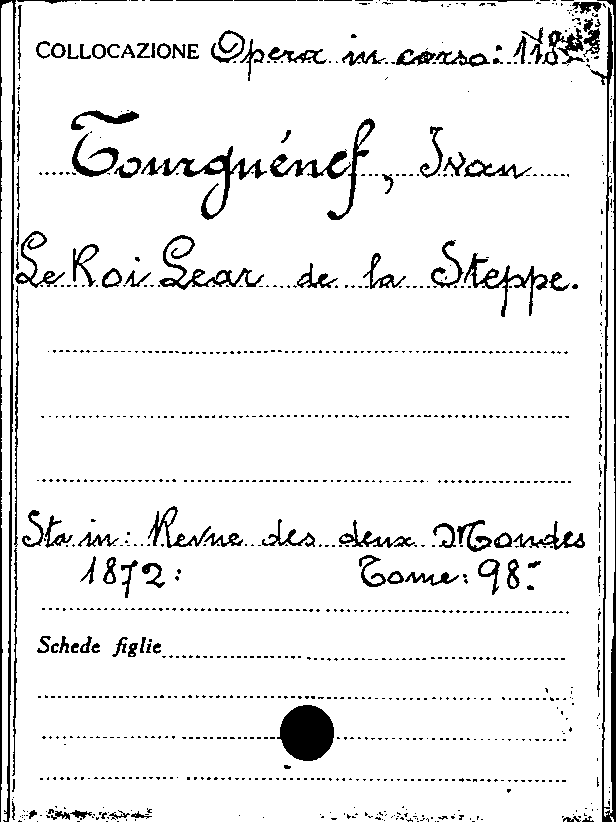 COLLOCAZIONE Opera in corso: 118
Tourguénef, Ivan
Le Roi Lear de la Steppe.
Sta in: Revue des deux Mondes
1872: Tome: 98:
Schede figlie